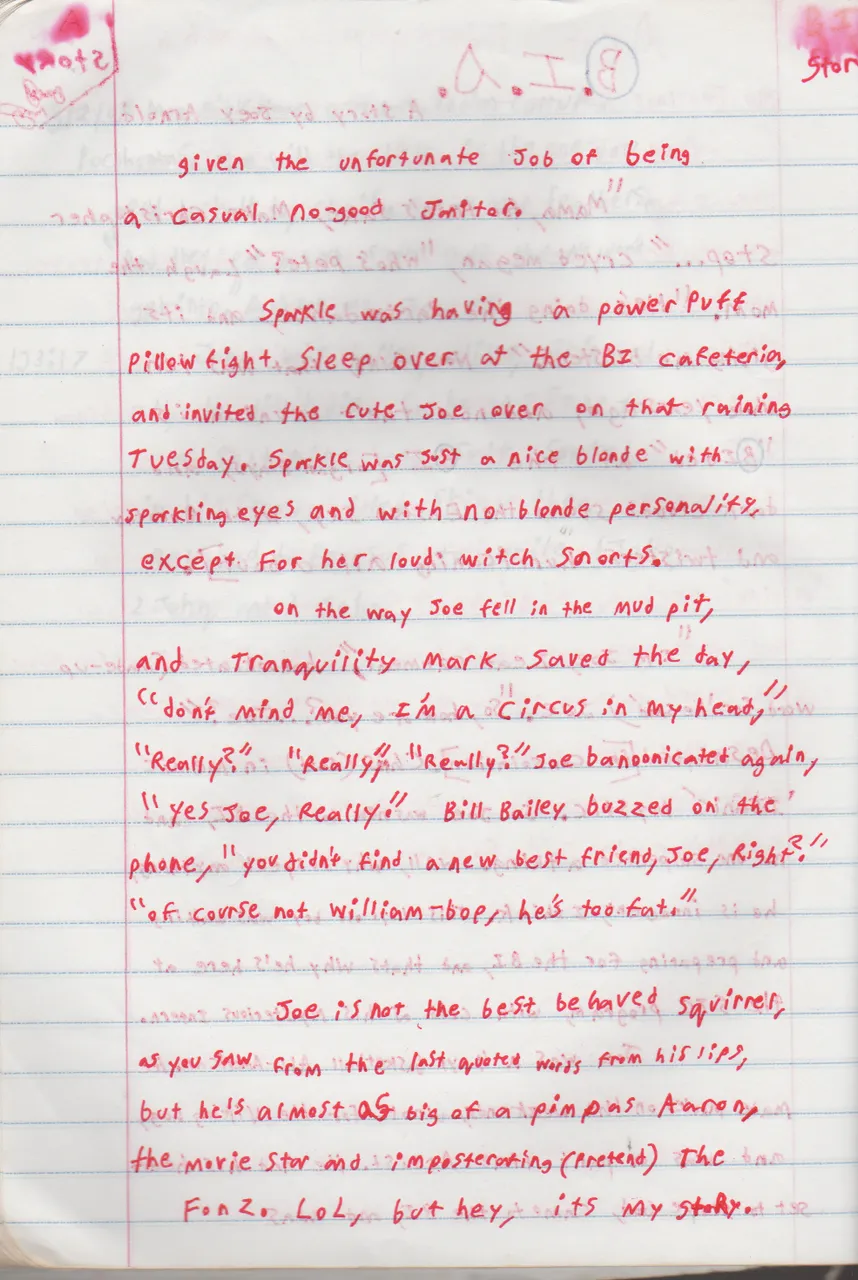 BI
Stor
given the unfortunate Job of being
a casual no-good Janitor.
Sparkle was having a power Puff
Pillow fight Sleep over at the BI cafeteria,
and invited the cute Joe over on that raining
Tuesday. Sparkle was Just a nice blonde with
sparkling eyes and with no blonde personality,
except for her loud witch Snorts.
on the way Joe fell in the mud pit,
and Tranquility Mark Saved the day,
"don't mind me, I'm a "Circus in my head,"
"Really?" "Really", "Really?" Joe banoonicated again,
"yes Joe, Really!" Bill Bailey buzzed on the
phone, "you didn't find a new best friend, Joe, Right?"
"of course not William-bop, he's too fat."
Joe is not the best behaved squirrel,
as you saw from the last quoted words from his lips,
but he's almost as big of a pimp as Aaron,
the movie star and imposterating (pretend) The
Fonz. LoL, but hey, its my story.